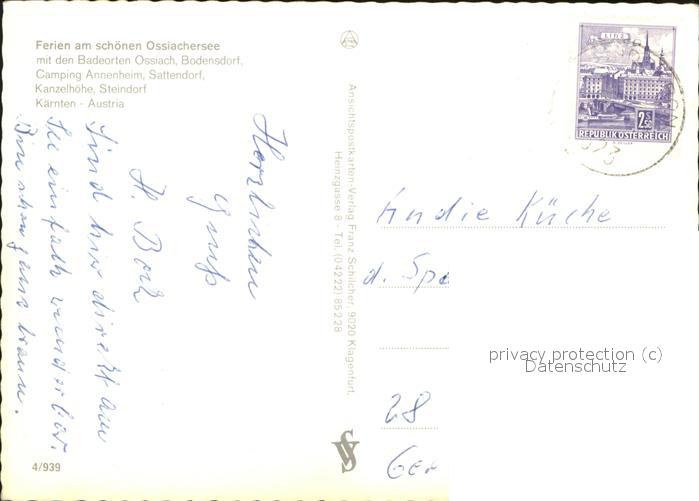 Ferien am schönen Ossiachersee
mit den Badeorten Ossiach, Bodensdorf,
Camping Annenheim, Sattendorf,
Kanzelhöhe, Steindorf
Kärnten - Austria
Herzlichen
Gruß
H.
Sind hier direkt am
See einfach wunderbar.
Bin schon ganz braun.
4/939
Ansichtspostkarten-Verlag Franz Schilcher, 9020 Klagenfurt,
Heinzgasse 8 - Tel. (04222) 85228
LINZ
2.50
REPUBLIK ÖSTERREICH
An die Küche
d. Spa
28
Ger
privacy protection (c)
Datenschutz